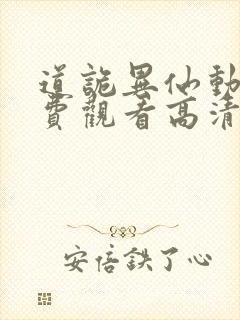 道詭異仙動
費觀看高清
安倍鉄了心